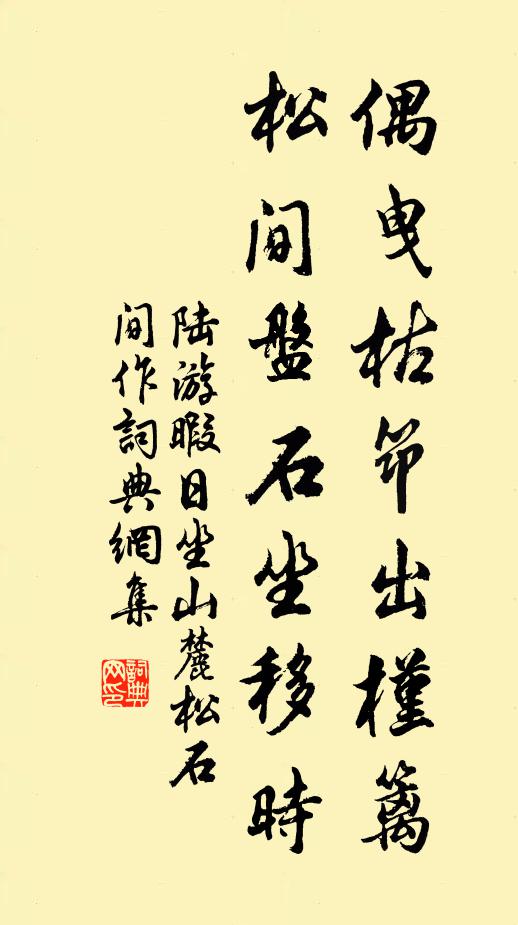 偶曳枯笻出槿籬
松間盤石坐移時
陆游暇日坐山麓松石
間作詞典網集
詞典网印